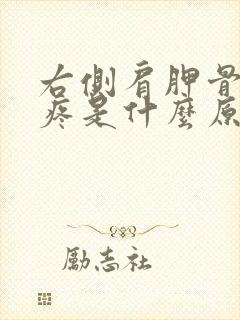 右側肩胛骨
疼是什麼原
勵志社